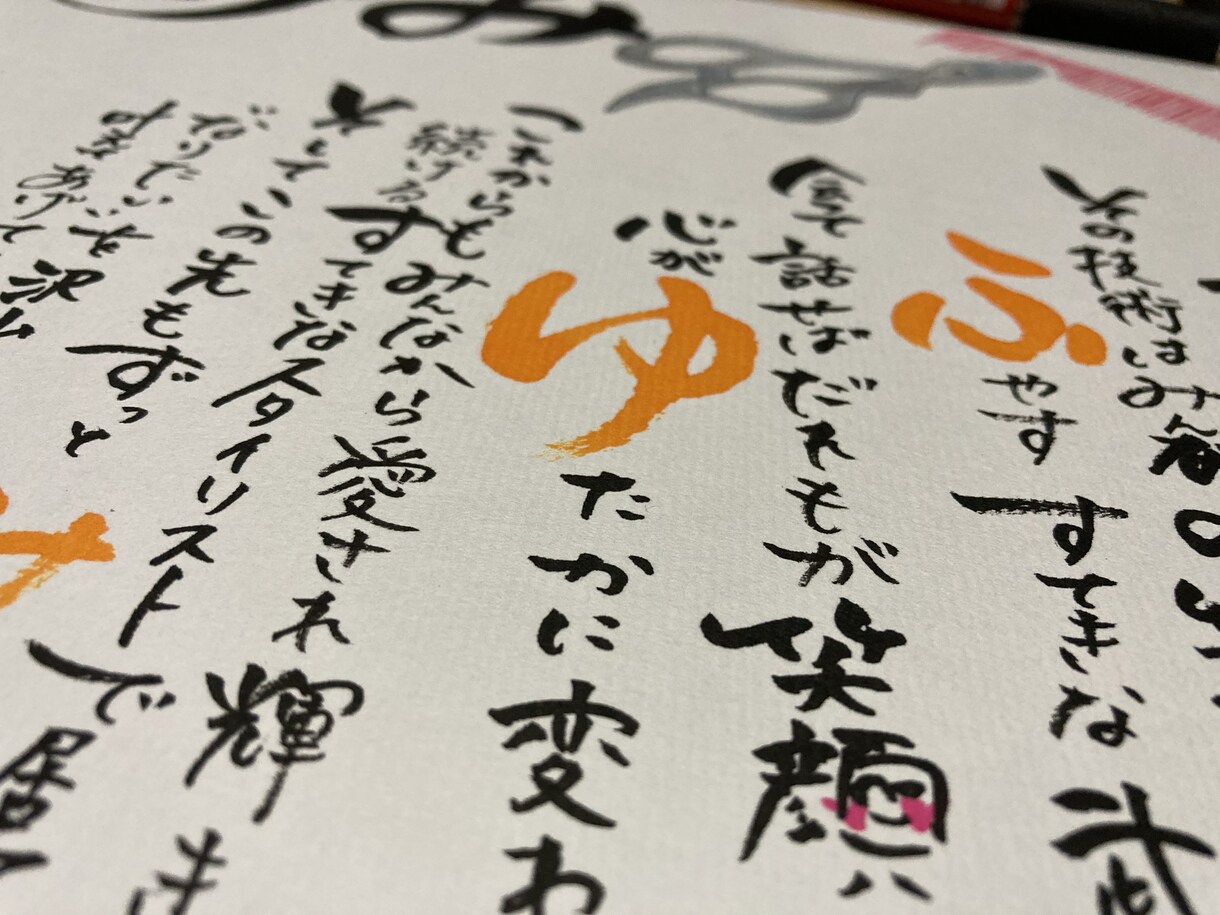 み
その技術は
ふやす すてきな 武
会て話せばだれもが笑顔に
心がゆたかに変わ
これからもみんなから愛され輝き
続けるすてきなスタイリストで
そしてこの先もずっと
"なりたい"を沢山
け